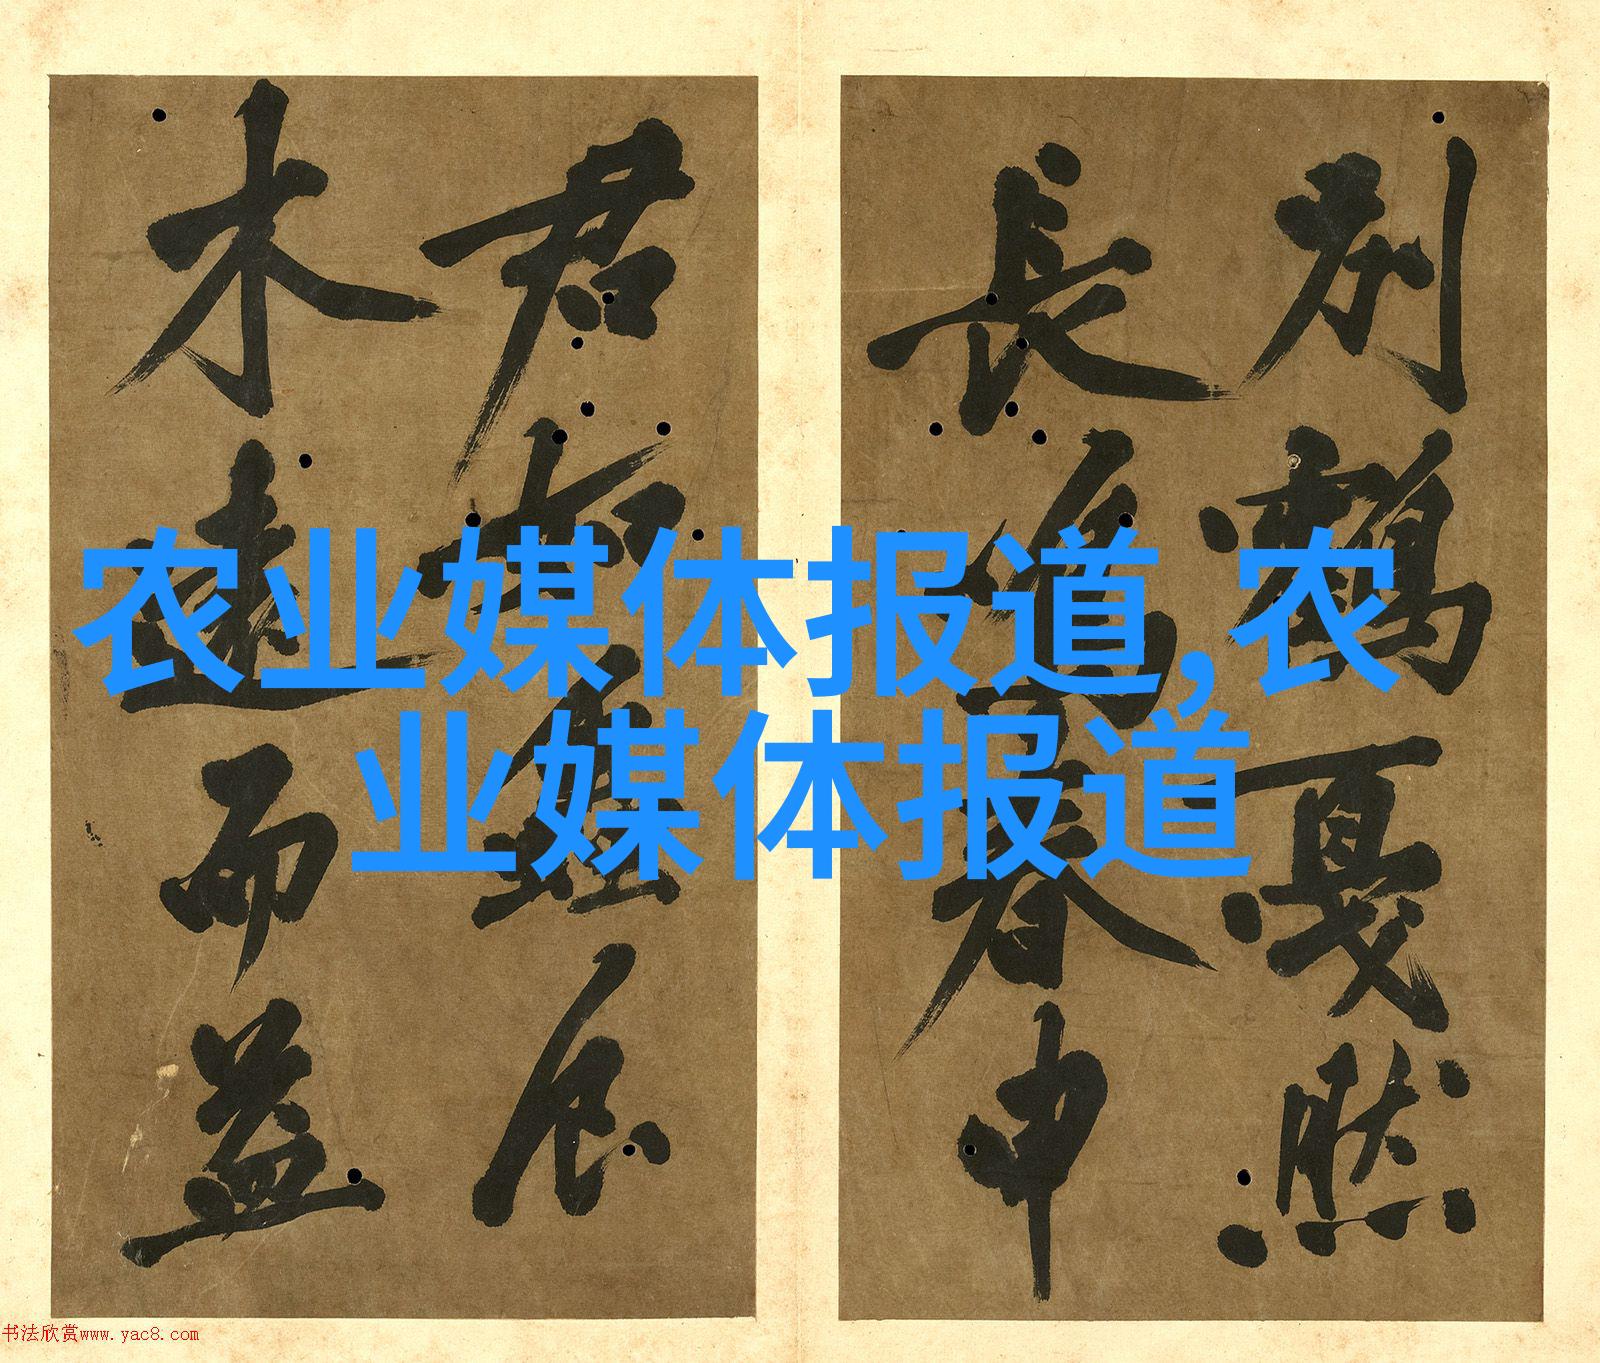 别鶴戛然
長鳴春申
君
木遠而益
农业媒体报道,农
业媒体报道
书法欣赏www.yac8.com